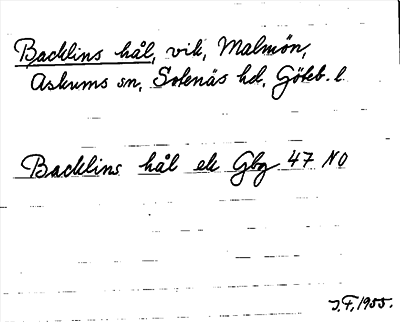 Backlins hål, vik, Malmön,
Askums sn, Sotenäs hd, Göteb. l.
Backlins hål ek Gbg 47 NO
J.F, 1955.